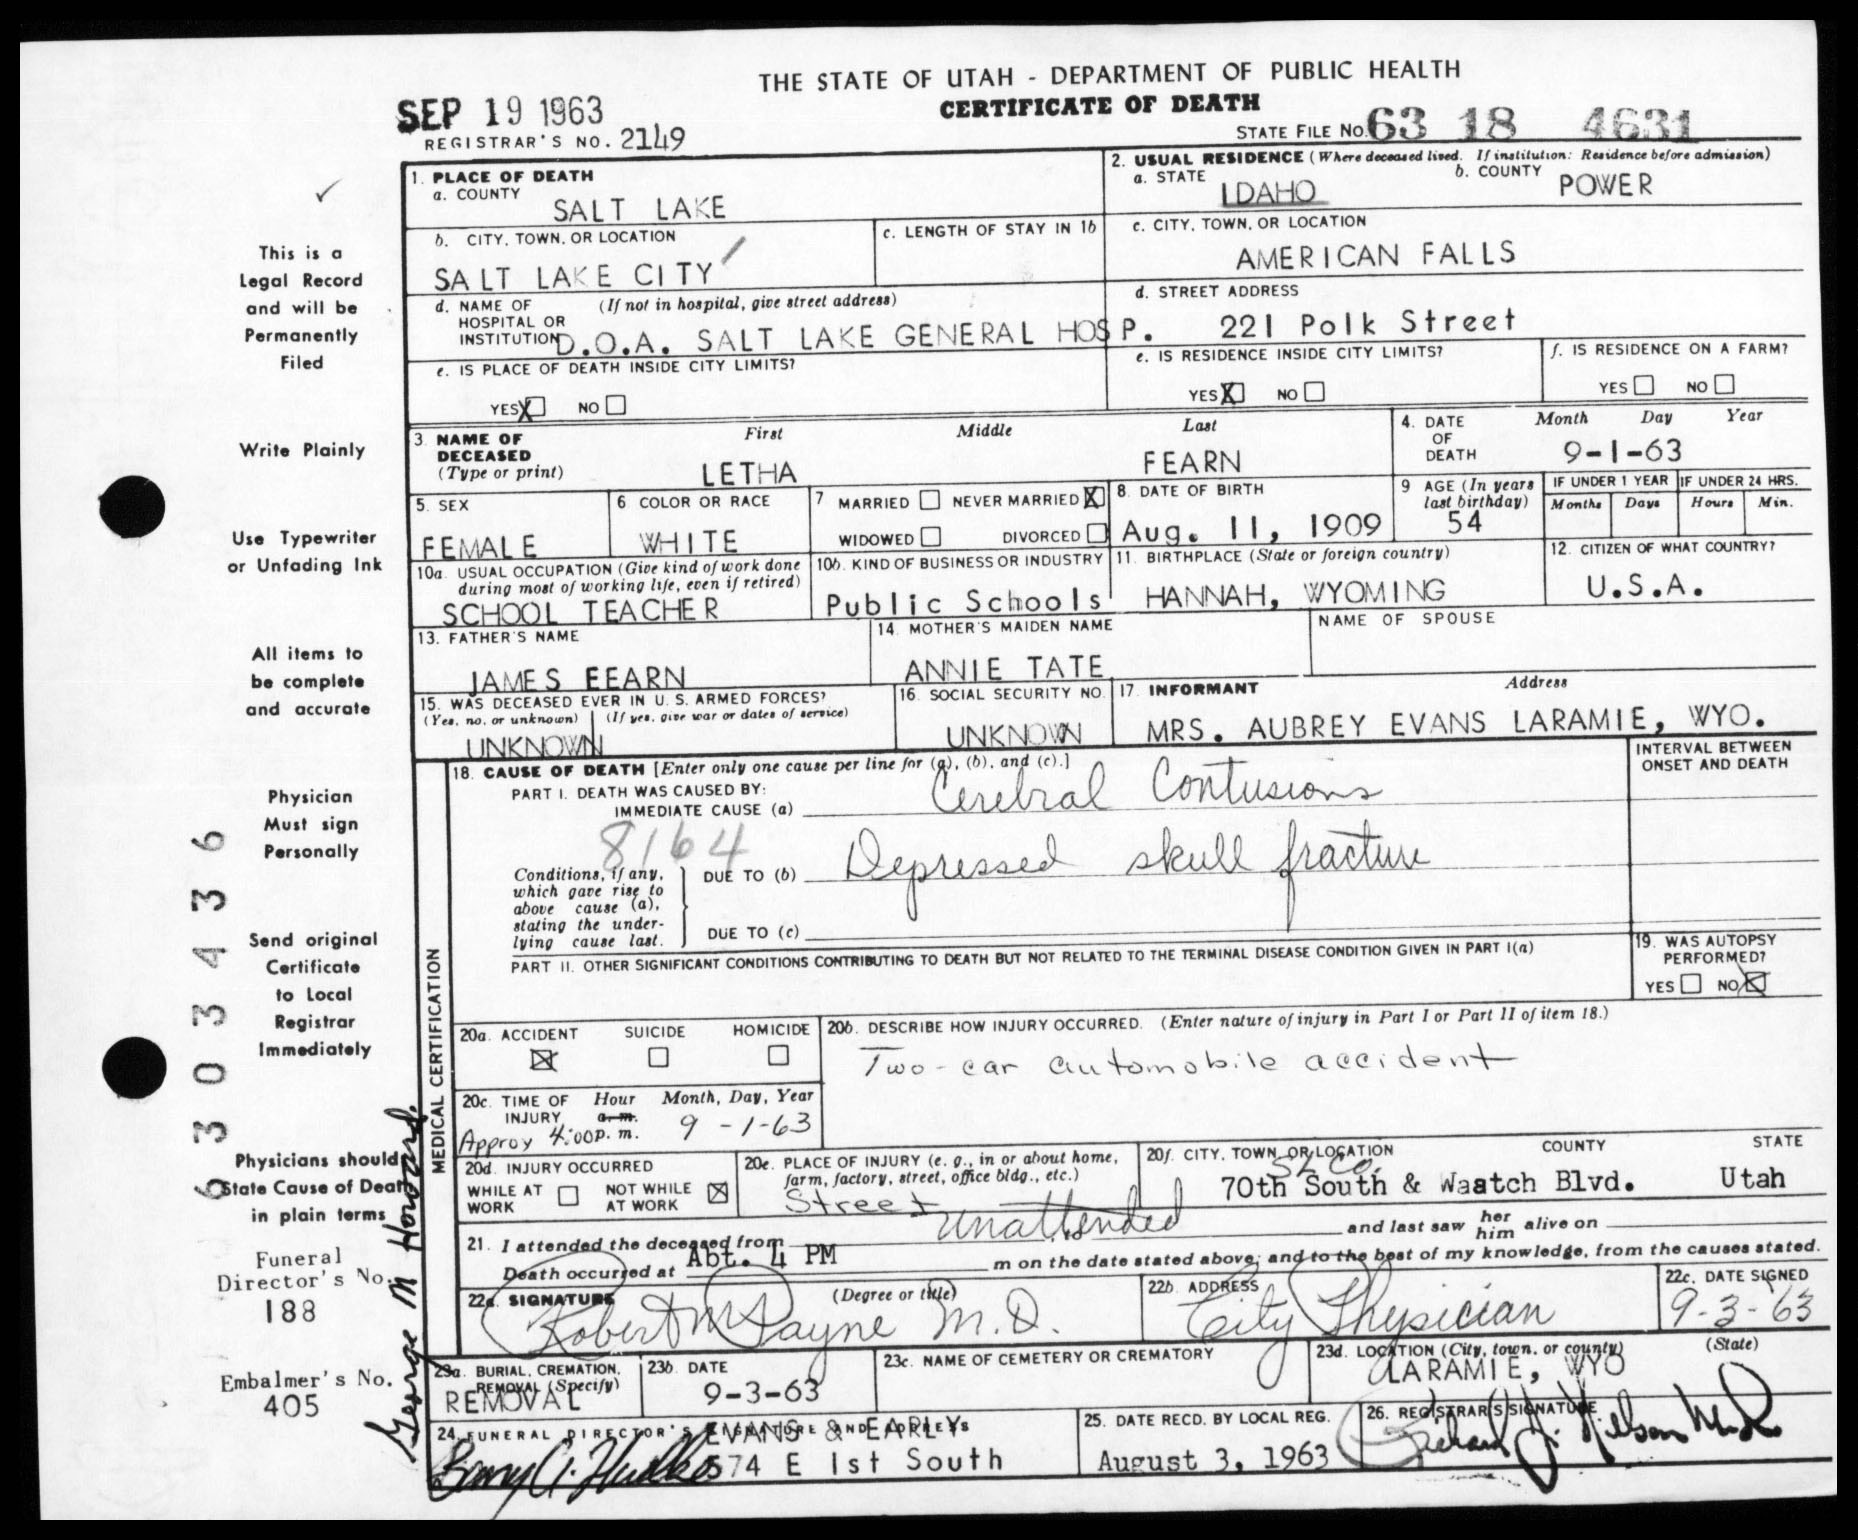 THE STATE OF UTAH - DEPARTMENT OF PUBLIC HEALTH
CERTIFICATE OF DEATH
SEP 19 1963
REGISTRAR'S NO. 2149
STATE FILE NO. 63 18 4631
This is a
Legal Record
and will be
Permanently
Filed
Write Plainly
Use Typewriter
or Unfading Ink
All items to
be complete
and accurate
Physician
Must sign
Personally
Send original
Certificate
to Local
Registrar
Immediately
Physicians should
State Cause of Death
in plain terms
Funeral
Director's No.
188
Embalmer's No.
405
6303436
George M Howard.
1. PLACE OF DEATH
a. COUNTY
SALT LAKE
b. CITY, TOWN, OR LOCATION
SALT LAKE CITY
c. LENGTH OF STAY IN 1b
d. NAME OF (If not in hospital, give street address)
HOSPITAL OR
INSTITUTION D.O.A. SALT LAKE GENERAL HOSP.
e. IS PLACE OF DEATH INSIDE CITY LIMITS?
YES X NO
2. USUAL RESIDENCE (Where deceased lived. If institution: Residence before admission)
a. STATE IDAHO
b. COUNTY POWER
c. CITY, TOWN, OR LOCATION
AMERICAN FALLS
d. STREET ADDRESS
221 Polk Street
e. IS RESIDENCE INSIDE CITY LIMITS?
YES X NO
f. IS RESIDENCE ON A FARM?
YES NO
3. NAME OF DECEASED (Type or print)
First Middle Last
LETHA FEARN
4. DATE OF DEATH Month Day Year
9-1-63
5. SEX
FEMALE
6 COLOR OR RACE
WHITE
7 MARRIED NEVER MARRIED X
WIDOWED DIVORCED
8. DATE OF BIRTH
Aug. 11, 1909
9 AGE (In years last birthday)
54
IF UNDER 1 YEAR IF UNDER 24 HRS.
Months Days Hours Min.
10a. USUAL OCCUPATION (Give kind of work done
during most of working life, even if retired)
SCHOOL TEACHER
10b. KIND OF BUSINESS OR INDUSTRY
Public Schools
11. BIRTHPLACE (State or foreign country)
HANNAH, WYOMING
12. CITIZEN OF WHAT COUNTRY?
U.S.A.
13. FATHER'S NAME
JAMES EEARN
14. MOTHER'S MAIDEN NAME
ANNIE TATE
NAME OF SPOUSE
15. WAS DECEASED EVER IN U. S. ARMED FORCES?
(Yes, no, or unknown) (If yes, give war or dates of service)
UNKNOWN
16. SOCIAL SECURITY NO.
UNKNOWN
17. INFORMANT Address
MRS. AUBREY EVANS LARAMIE, WYO.
MEDICAL CERTIFICATION
18. CAUSE OF DEATH [Enter only one cause per line for (a), (b), and (c).]
INTERVAL BETWEEN
ONSET AND DEATH
PART I. DEATH WAS CAUSED BY:
IMMEDIATE CAUSE (a) Cerebral Contusions
8164
Conditions, if any,
which gave rise to
above cause (a),
stating the under-
lying cause last.
DUE TO (b) Depressed skull fracture
DUE TO (c)
PART II. OTHER SIGNIFICANT CONDITIONS CONTRIBUTING TO DEATH BUT NOT RELATED TO THE TERMINAL DISEASE CONDITION GIVEN IN PART I(a)
19. WAS AUTOPSY
PERFORMED?
YES NO X
20a. ACCIDENT SUICIDE HOMICIDE
X
20b. DESCRIBE HOW INJURY OCCURRED. (Enter nature of injury in Part I or Part II of item 18.)
Two-car automobile accident
20c. TIME OF INJURY Hour Month, Day, Year
a.m.
Approx 4:00 p. m. 9-1-63
20d. INJURY OCCURRED
WHILE AT WORK NOT WHILE AT WORK X
20e. PLACE OF INJURY (e. g., in or about home,
farm, factory, street, office bldg., etc.)
Street
20f. CITY, TOWN, OR LOCATION COUNTY STATE
SL Co.
70th South & Waatch Blvd. Utah
21. I attended the deceased from unattended to and last saw her him alive on
Death occurred at Abt. 4 PM m on the date stated above; and to the best of my knowledge, from the causes stated.
22a. SIGNATURE (Degree or title)
Robert M Payne M.D.
22b. ADDRESS
City Physician
22c. DATE SIGNED
9-3-'63
23a. BURIAL, CREMATION, REMOVAL (Specify)
REMOVAL
23b. DATE
9-3-63
23c. NAME OF CEMETERY OR CREMATORY
23d. LOCATION (City, town, or county) (State)
LARAMIE, WYO
24. FUNERAL DIRECTOR'S SIGNATURE AND ADDRESS
EVANS & EARLY
574 E 1st South
25. DATE RECD. BY LOCAL REG.
August 3, 1963
26. REGISTRAR'S SIGNATURE
Richard J. Nielson M.D.